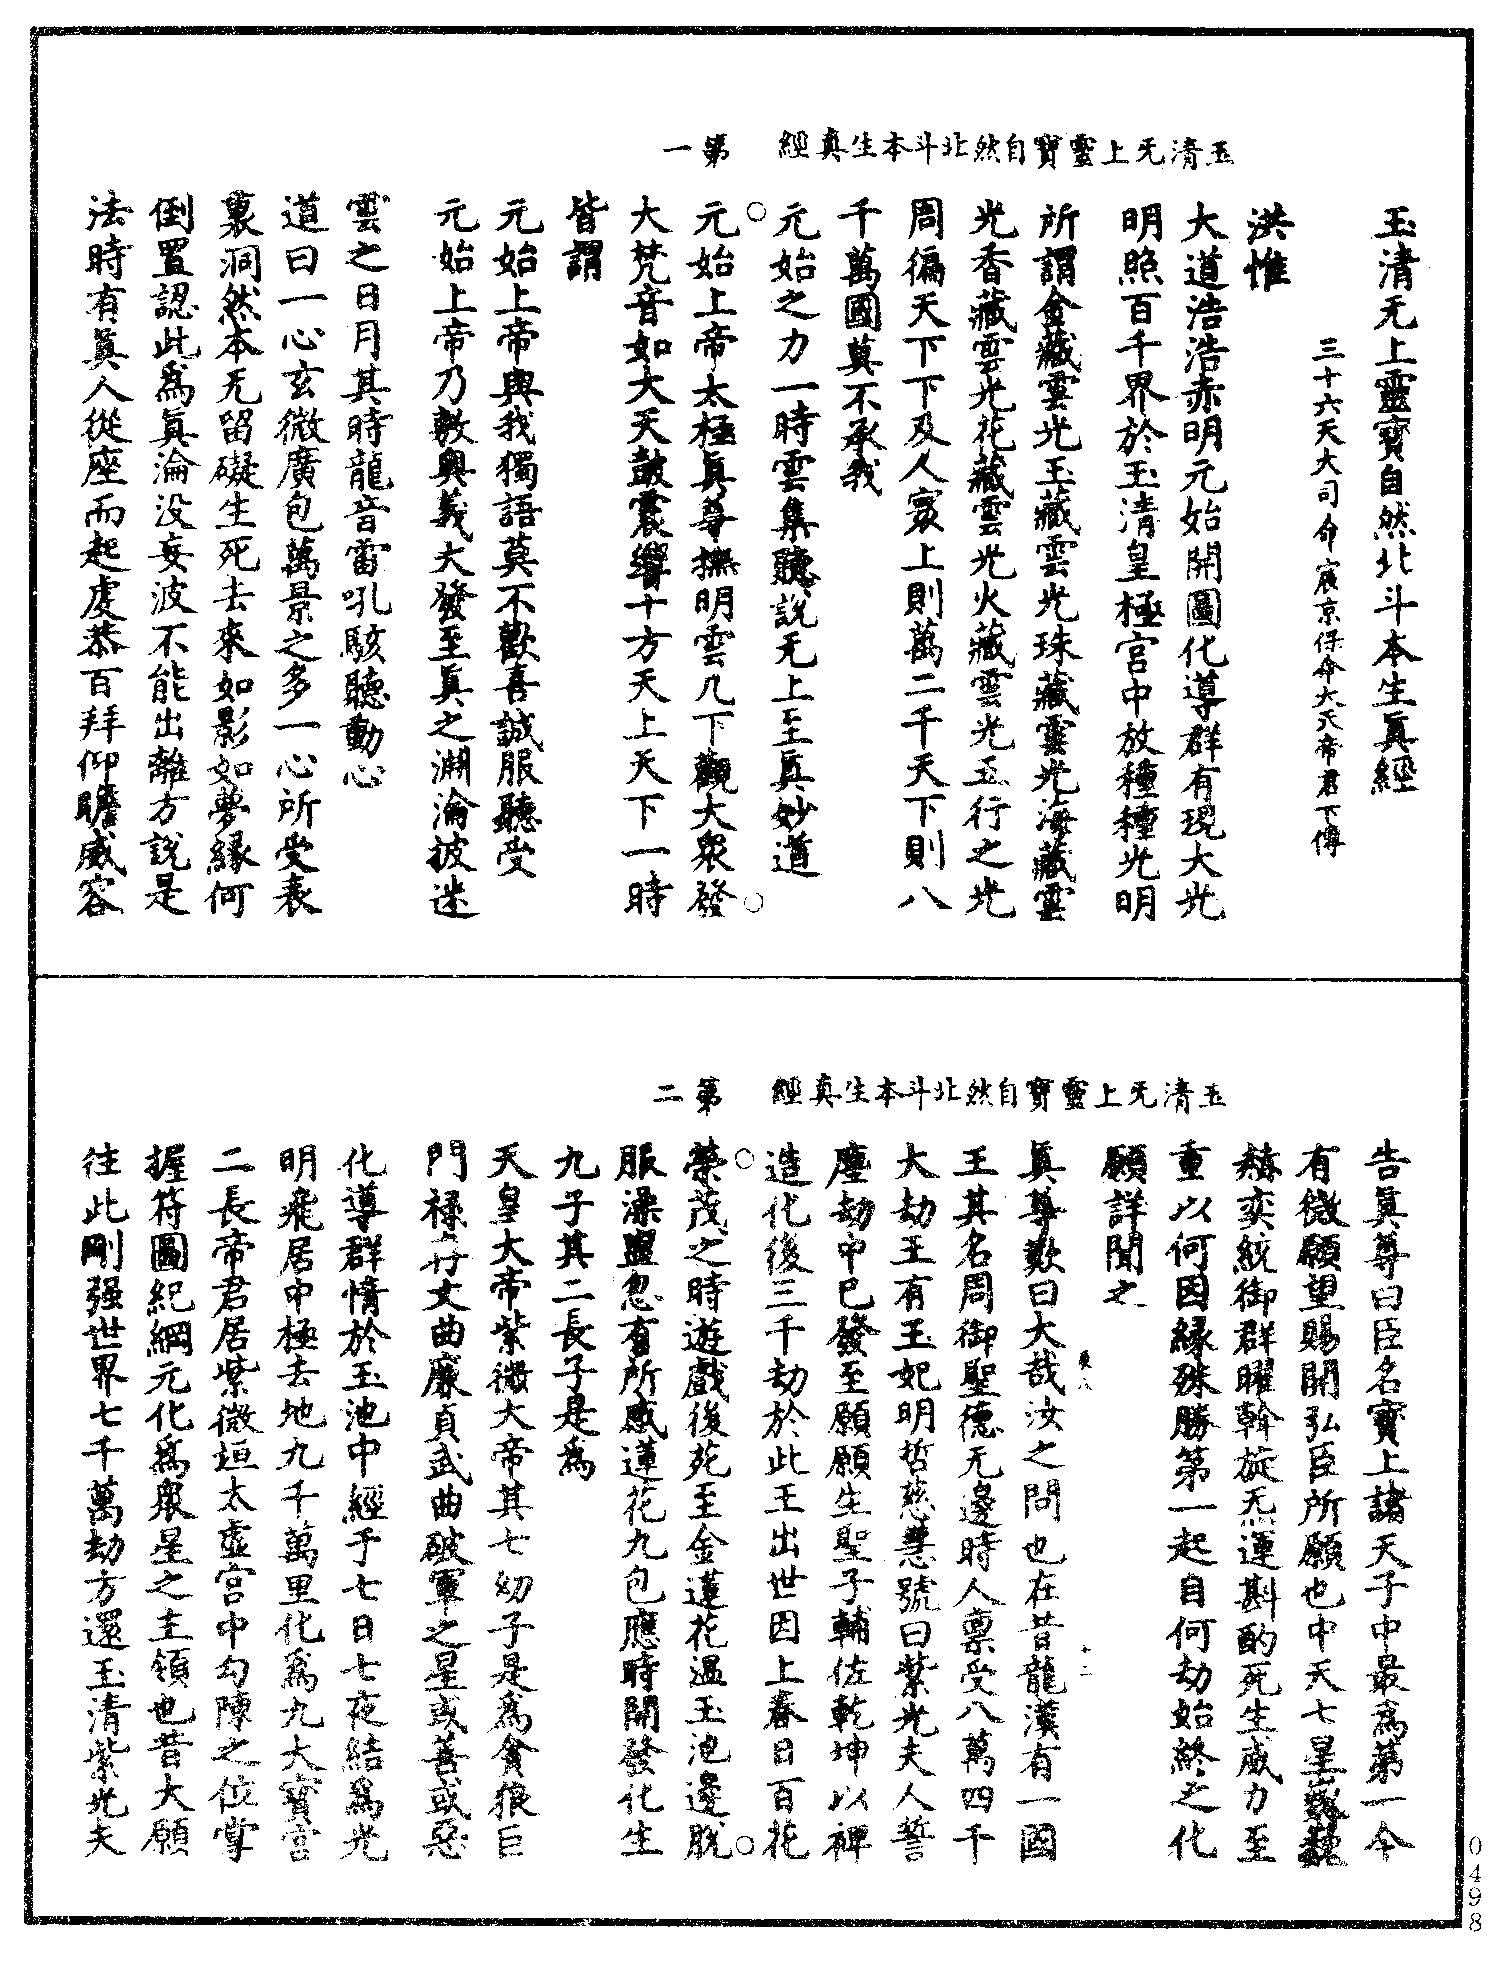 玉清无上靈寶自然北斗本生真經 第一
玉清无上靈寶自然北斗本生真經
三十六天大司命扆京保命大天帝君下傳
洪惟
大道浩浩赤明元始開圖化導群有現大光
明照百千界於玉清皇極宮中放種種光明
所謂金藏雲光玉藏雲光珠藏靈光海藏雲
光香藏雲光花藏雲光火藏雲光五行之光
周徧天下下及人寰上則萬二千天下則八
千萬國莫不承我
元始之力一時雲集聽說无上至真妙道
元始上帝太極真尊撫明雲几下觀大眾發
大梵音如大天鼓震響十方天上天下一時
皆謂
元始上帝與我獨語莫不歡喜誠服聽受
元始上帝乃敷奧義大發至真之淵淪披迷
雲之日月其時龍音雷吼駭聽動心
道曰一心玄微廣包萬景之多一心所受表
裏洞然本无留礙生死去來如影如夢緣何
倒置認此為真淪没妄波不能出離方說是
法時有真人從座而起虔恭百拜仰瞻威容
玉清无上靈寶自然北斗本生真經 第二
告真尊曰臣名寶上諸天子中最為第一今
有微願望賜開弘臣所願也中天七星巍巍
赫奕統御群曜斡旋炁運斟酌死生威力至
重以何因緣殊勝第一起自何劫始終之化
願詳聞之
真尊歎曰大哉汝之問也在昔龍漢有一國
王其名周御聖德无邊時人禀受八萬四千
大劫王有玉妃明哲慈慧號曰紫光夫人誓
塵劫中已發至願願生聖子輔佐乾坤以裨
造化後三千劫於此王出世因上春日百花
榮茂之時遊戲後苑至金蓮花温玉池邊脫
服澡盥忽有所感蓮花九包應時開發化生
九子其二長子是為
天皇大帝紫微大帝其七幼子是為貪狼巨
門禄存文曲廉貞武曲破軍之星或善或惡
化導群情於玉池中經于七日七夜結為光
明飛居中極去地九千萬里化為九大寶宮
二長帝君居紫微垣太虛宮中勾陳之位掌
握符圖紀綱元化為眾星之主領也昔大願
往此剛强世界七千萬劫方還玉清紫光夫
0498